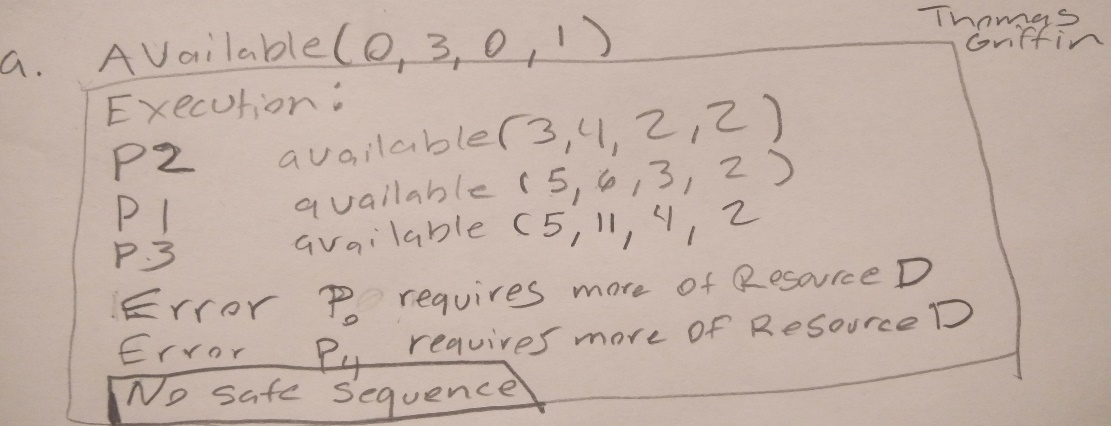 Thomas
Griffin
a. Available(0, 3, 0, 1)
Execution:
P2 available(3, 4, 2, 2)
P1 available (5, 6, 3, 2)
P3 available (5, 11, 4, 2
Error P0 requires more of Resource D
Error P4 requires more of Resource D
No safe sequence